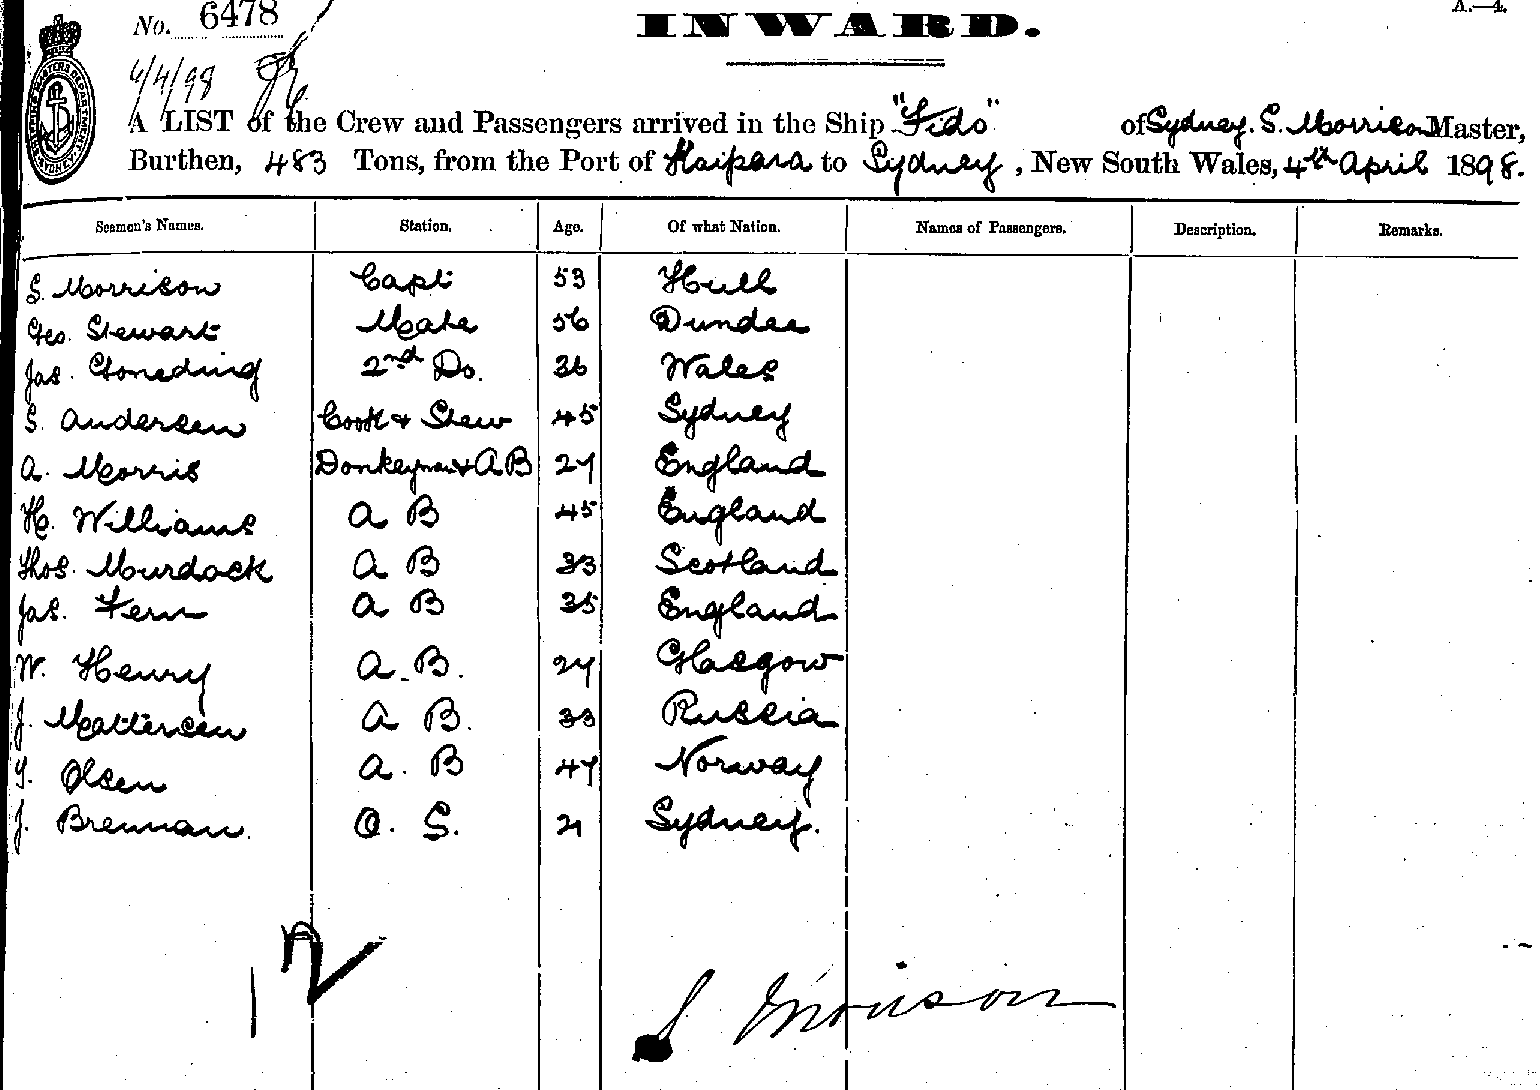 A.—4.
No. 6478
INWARD.
6/4/98
A LIST of the Crew and Passengers arrived in the Ship "Fido" of Sydney. S. Morrison Master,
Burthen, 483 Tons, from the Port of Kaipara to Sydney, New South Wales, 4th April 1898.
Seamen's Names. Station. Age. Of what Nation. Names of Passengers. Description. Remarks.
S. Morrison Capt 53 Hull
Geo. Stewart Mate 56 Dundee
Jas. 2nd Do. 36 Wales
S. Andersen Cook & Stew 45 Sydney
A. Morris Donkeyman & A B 27 England
H. Williams A B 45 England
Thos. Murdock A B 33 Scotland
Jas. Fern A B 35 England
W. Henry A.B. 27 Glasgow
J. Mattersen A B. 33 Russia
Olsen A. B 47 Norway
J. Brennan. O. S. 21 Sydney.
12
S Morrison